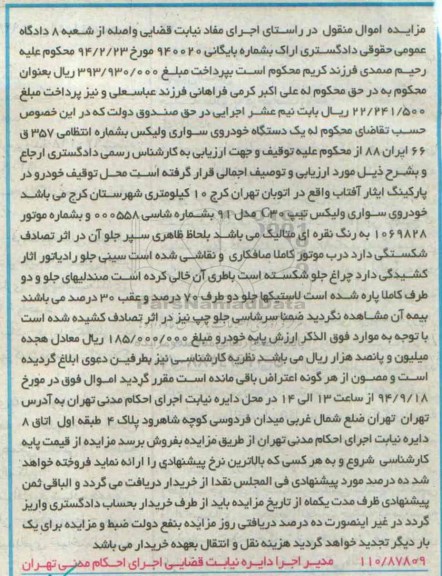 مزایده اموال منقول در راستای اجرای مفاد نیابت قضایی واصله از شعبه ۸ دادگاه
عمومی حقوقی دادگستری اراک بشماره بایگانی ۹۴۰۰۲۰ مورخ ۹۴/۲/۲۳ محکوم علیه
رحیم صمدی فرزند کریم محکوم است بپرداخت مبلغ ۳۹۳/۹۳۰/۰۰۰ ریال بعنوان
محکوم به در حق محکوم له علی اکبر کرمی فراهانی فرزند عباسعلی و نیز پرداخت مبلغ
۲۲/۲۴۱/۵۰۰ ریال بابت نیم عشر اجرایی در حق صندوق دولت که در این خصوص
حسب تقاضای محکوم له یک دستگاه خودروی سواری ولیکس بشماره انتظامی ۳۵۷ ق
۶۶ ایران ۸۸ از محکوم علیه توقیف و جهت ارزیابی به کارشناس رسمی دادگستری ارجاع
و بشرح ذیل مورد ارزیابی و توصیف اجمالی قرار گرفته است محل توقیف خودرو در
پارکینگ ایثار آفتاب واقع در اتوبان تهران کرج ۱۰ کیلومتری شهرستان کرج می باشد
خودروی سواری ولیکس تیپ C۳۰ مدل ۹۱ بشماره شاسی ۰۰۰۵۵۸ و بشماره موتور
۱۰۶۹۸۲۸ به رنگ نقره ای متالیک می باشد بلحاظ ظاهری سپر جلو آن در اثر تصادف
شکستگی دارد درب موتور کاملا صافکاری و نقاشی شده است سینی جلو رادیاتور اثار
کشیدگی دارد چراغ جلو شکسته است باطری آن خالی کرده است صندلیهای جلو و دو
طرف کاملا پاره شده است لاستیکها جلو دو طرف ۷۰ درصد و عقب ۳۰ درصد می باشند
بیمه آن مشاهده نگردید ضمنا سرشاسی جلو چپ نیز در اثر تصادف کشیده شده است
با توجه به موارد فوق الذکر ارزش پایه خودرو مبلغ ۱۸۵/۰۰۰/۰۰۰ ریال معادل هجده
میلیون و پانصد هزار ریال می باشد نظریه کارشناسی نیز بطرفین دعوی ابلاغ گردیده
است و مصون از هر گونه اعتراض باقی مانده است مقرر گردید اموال فوق در مورخ
۹۴/۹/۱۸ از ساعت ۱۳ الی ۱۴ در محل دایره نیابت اجرای احکام مدنی تهران به آدرس
تهران تهران ضلع شمال غربی میدان فردوسی کوچه شاهرود پلاک ۴ طبقه اول اتاق ۸
دایره نیابت اجرای احکام مدنی تهران از طریق مزایده بفروش برسد مزایده از قیمت پایه
کارشناسی شروع و به هر کسی که بالاترین نرخ پیشنهادی را ارائه نماید فروخته خواهد
شد ده درصد مورد پیشنهادی فی المجلس نقدا از خریدار دریافت می گردد و الباقی ثمن
پیشنهادی ظرف مدت یکماه از تاریخ مزایده باید از طرف خریدار بحساب دادگستری واریز
گردد در غیر اینصورت ده درصد دریافتی روز مزایده بنفع دولت ضبط و مزایده برای یک
بار دیگر تجدید خواهد گردید هزینه نقل و انتقال بعهده خریدار می باشد
۱۱۰/۸۷۸۰۹ مدیر اجرا دایره نیابت قضایی اجرای احکام مدنی تهران